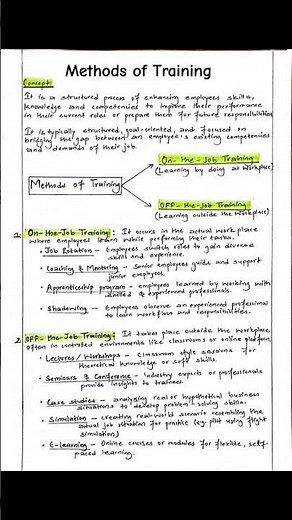 Methods of Training
Concept:
It is a structured process of enhancing employees skills,
knowledge and competencies to improve their performance
in their current roles or prepare them for future responsibilities.
It is typically structured, goal-oriented, and focused on
bridging the gap between an employee's existing competencies
and demands of their job.
On-the-Job Training
(Learning by doing at workplace)
Methods of Training
OFF-the-Job Training
(Learning outside the workplace)
1. On-the-Job-Training: It occurs in the actual workplace
where employees learn while performing their tasks.
• Job Rotation - Employees switch roles to gain diverse
skill and experience.
• Coaching & Mentoring - Senior employees guide and support
junior employees.
• Apprenticeship program - employees learned by working with
skilled & experienced professionals.
• Shadowing - Employees observe an experienced professional
to learn workflow and responsibilities.
2. OFF-the-Job-Training: It takes place outside the workplace,
often in controlled environments like classrooms or online platform.
• Lectures / Workshops - Classroom style sessions for
theoretical knowledge or soft skills.
• Seminars & Conference - Industry experts or professionals
provide insights to trainees.
• Case studies - analysing real or hypothetical business
situations to develop problem-solving skills.
• Simulation - creating real-world scenario resembling the
actual job situation for practice (eg: pilot using flight
simulation)
• E-learning - Online courses or modules for flexible, self-
paced learning.